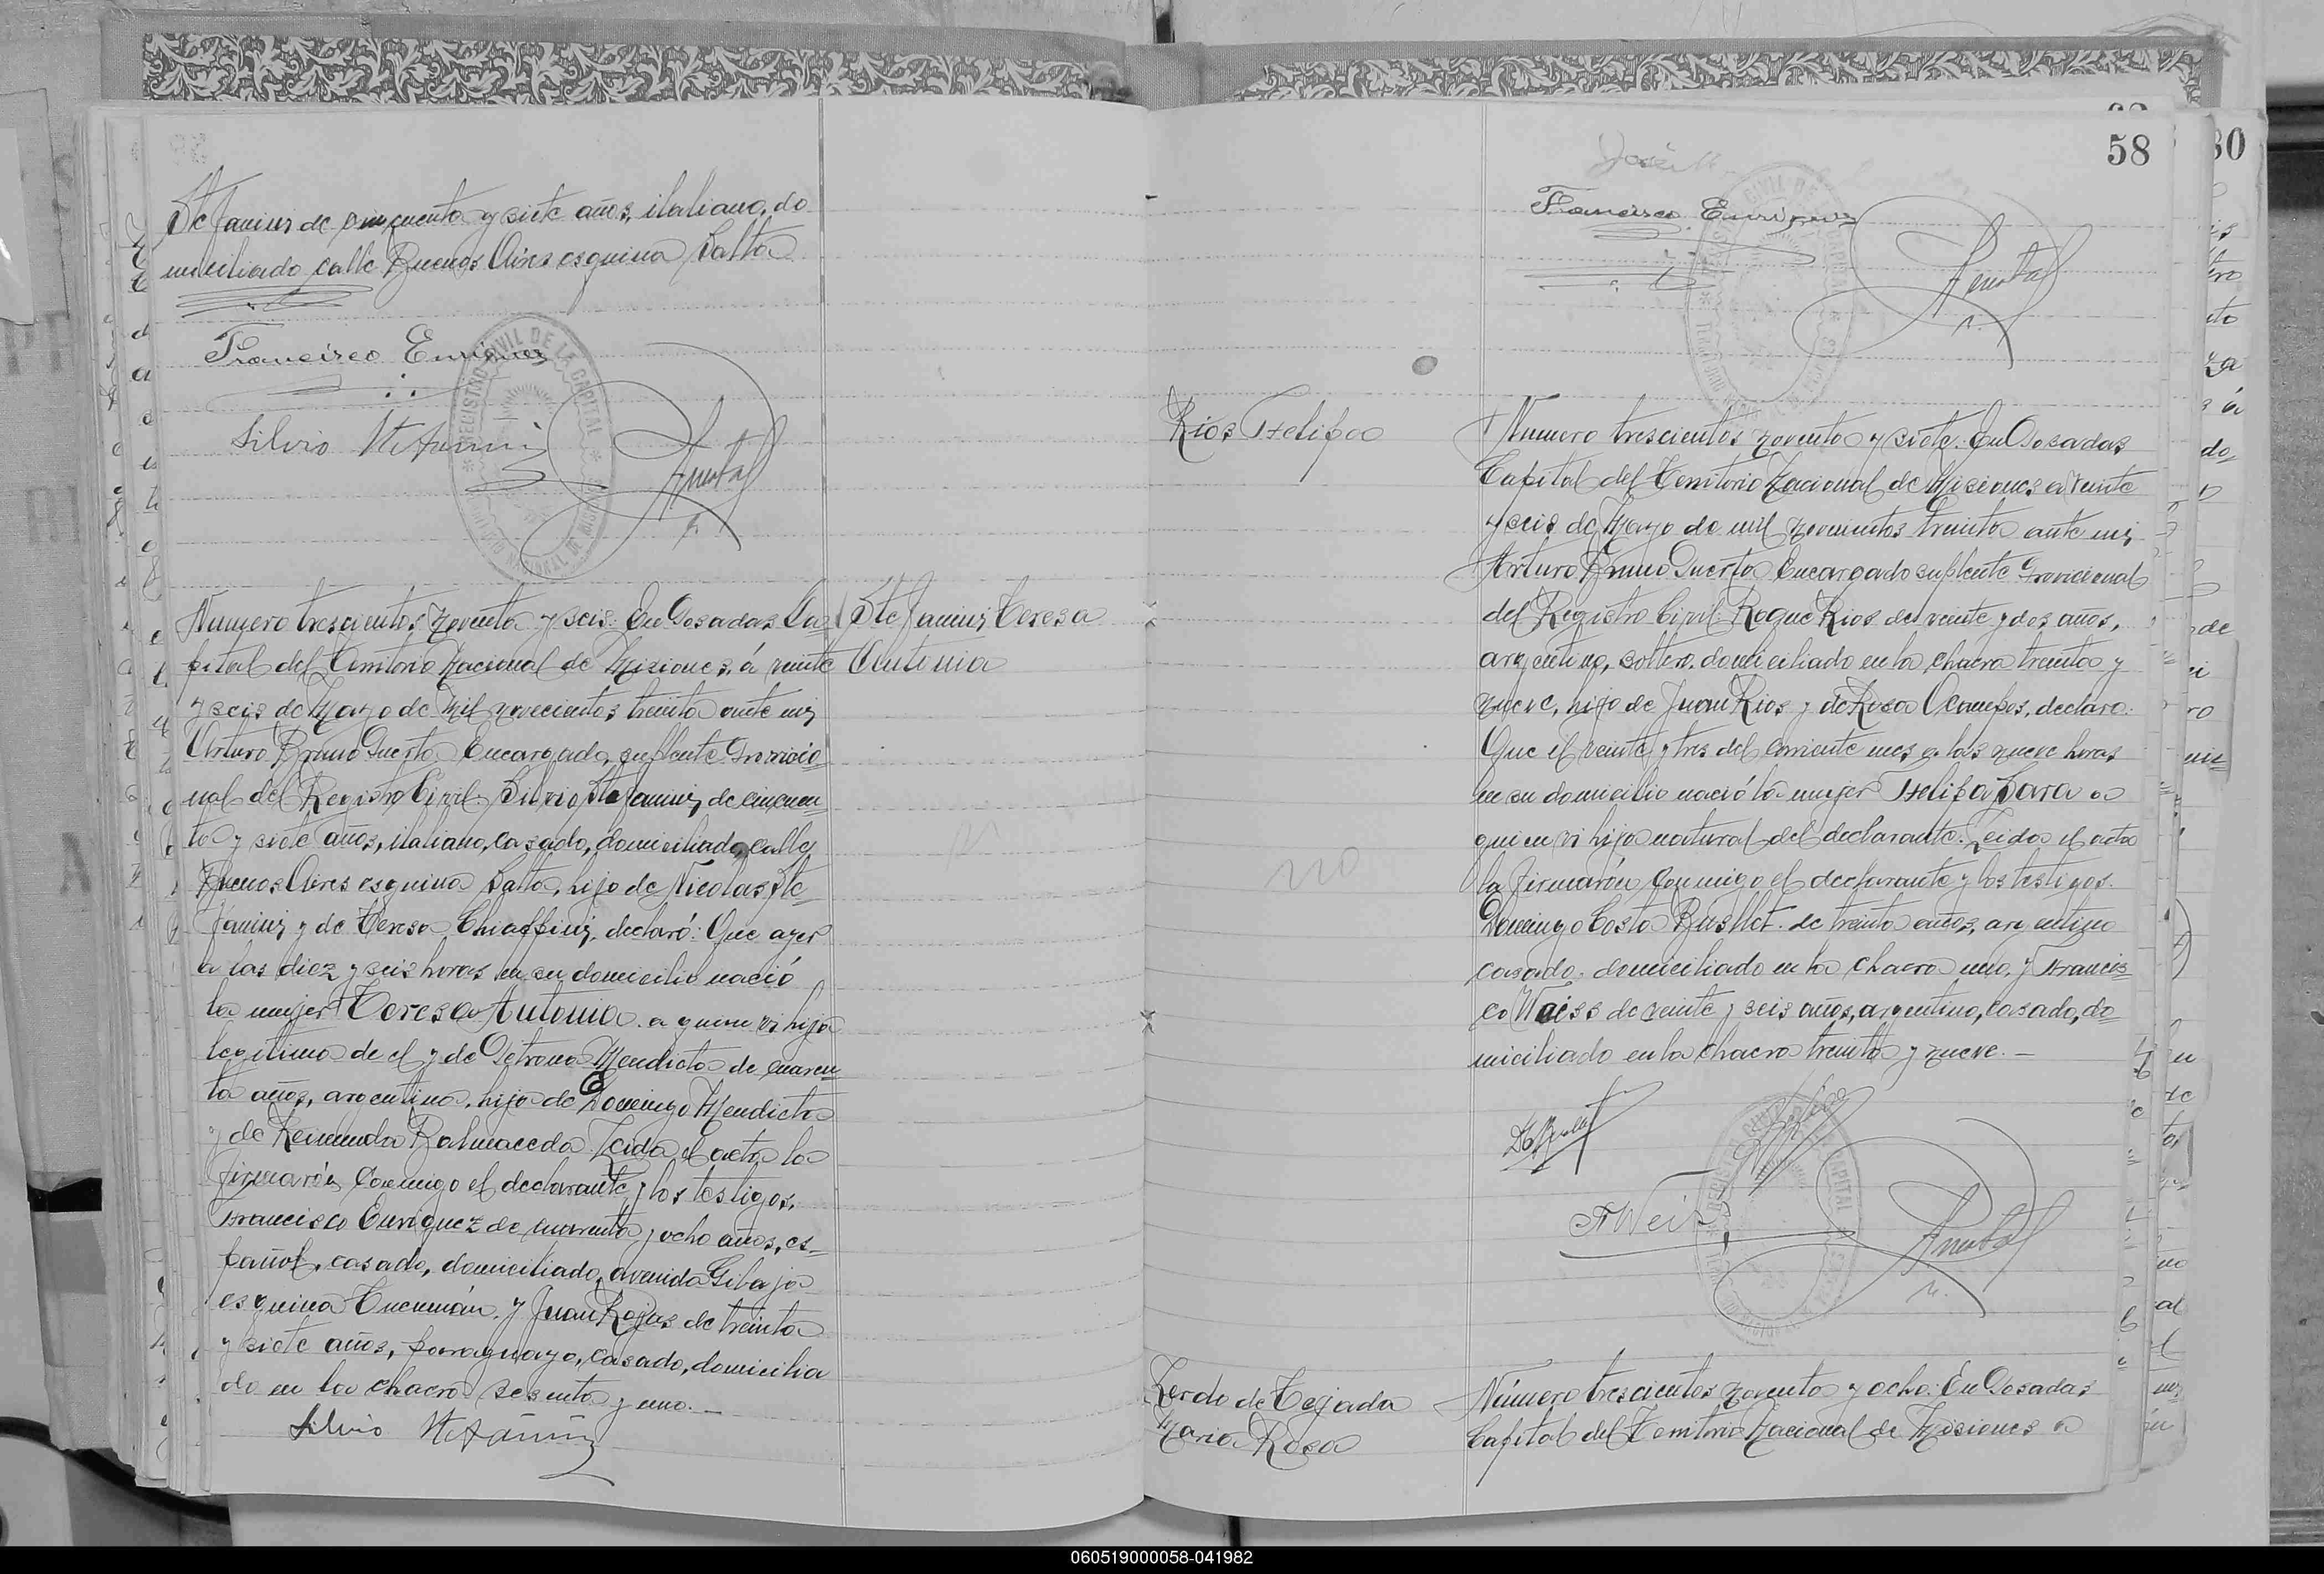 Stefanini de cincuenta y siete años, italiano, do
miciliado calle Buenos Aires esquina Salta
Francisco Enriquez
Silvio Stefanini
REGISTRO CIVIL DE LA CAPITAL
Numero trescientos noventa y seis. En Posadas Ca
pital del Territorio Nacional de Misiones, á veinte
y seis de Mayo de Mil novecientos treinta ante mi
Arturo Bruno Puerta Encargado suplente Provicio
nal del Registro Civil: Silvio Stefanini, de cincuen
ta y siete años, italiano, casado, domiciliado, calle
Buenos Aires esquina Salta, hijo de Nicolas Ste
fanini y de Teresa Chiaffini, declaró: Que ayer
a las diez y seis horas en su domicilio nació
la mujer Teresa Antonia a quien vi hija
legitima de el y de Petrona Mendieta de cuaren
ta años, argentina, hija de Domingo Mendieta
y de Remunda Balmaceda. Leida el acta la
firmarón conmigo el declarante y los testigos.
Francisco Enriquez de cuarenta y ocho años, es-
pañol, casado, domiciliado, avenida Gibaja
esquina Tucumán, y Juan Rojas de treinta
y siete años, paraguayo, casado, domicilia
do en la chacra sesenta y uno.—
Silvio Stefanini
Stefanini Teresa
Antonia
58
30
José M
Francisco Enriquez
Rios Felipa
Numero trescientos noventa y siete. En Posadas
Capital del Territorio Nacional de Misiones a veinte
y seis de Mayo de mil novecientos treinta ante mi
Arturo Bruno Puerta Encargado suplente Provicional
del Registro Civil: Roque Rios de veinte y dos años,
argentino, soltero, domiciliado en la chacra treinta y
nueve, hijo de Juan Rios y de Rosa Ocampos, declaro:
Que el veinte y tres del corriente mes a las nueve horas
en su domicilio nació la mujer Felipa Sara a
quien vi hija natural del declarante. Leida el acta
la firmarón conmigo el declarante y los testigos.
Domingo Costa Busllet de treinta años, argentino
casado, domiciliado en la chacra uno, y Francis
co Weiss de veinte y seis años, argentino, casado, do
miciliado en la chacra treinta y nueve.—
no
F Weiss
Lerdo de Tejada
Maria Rosa
Número trescientos noventa y ocho: En Posadas
Capital del Territorio Nacional de Misiones a
060519000058-041982